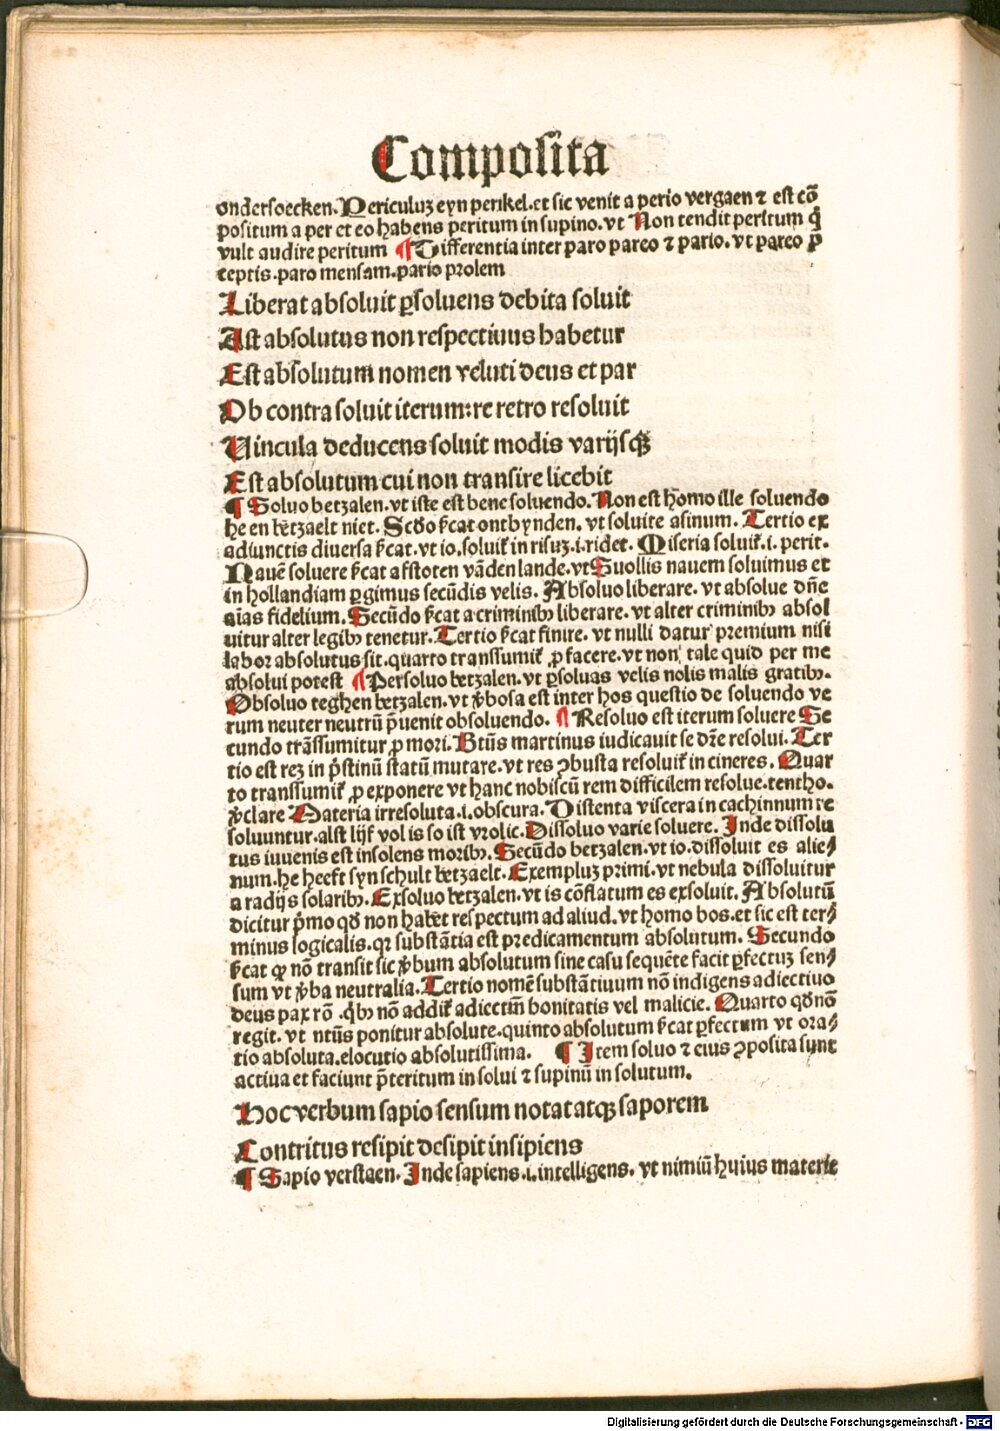 Composita
ondersoecken. Periculuꝫ eyn perikel. et sic venit a perio vergaen ⁊ est cō
positum a per et eo habens peritum in supino. vt Non tendit peritum q̄
vult audire peritum ¶ Differentia inter paro pareo ⁊ pario. vt pareo p̄
ceptis. paro mensam. pario prolem
Liberat absoluit ꝑsoluens debita soluit
Ast absolutus non respectiuus habetur
Est absolutum nomen veluti deus et par
Ob contra soluit iterum: re retro resoluit
Vincula deducens soluit modis varijsqꝫ
Est absolutum cui non transire licebit
¶ Soluo betzalen. vt iste est bene soluendo. Non est homo ille soluendo
he en betzaelt niet. Scd̄o ẜcat ontbynden. vt soluite asinum. Tertio ex
adiunctis diuersa ẜcat. vt io. soluit᷑ in risuꝫ .i. ridet. Miseria soluit᷑ .i. perit.
Nauē soluere ẜcat afstoten vā den lande. vt Suollis nauem soluimus et
in hollandiam ꝑgimus secūdis velis. Absoluo liberare. vt absolue dn̄e
aīas fidelium. Secūdo ẜcat a criminibꝫ liberare. vt alter criminibꝫ absol
uitur alter legibꝫ tenetur. Tertio ẜcat finire. vt nulli datur premium nisi
labor absolutus sit. quarto transsumit᷑ ꝓ facere. vt non tale quid per me
absolui potest ¶ Persoluo betzalen. vt ꝑsoluas velis nolis malis gratibꝫ.
Obsoluo teghen betzalen. vt v̄bosa est inter hos questio de soluendo ve
rum neuter neutrū p̄uenit obsoluendo. ¶ Resoluo est iterum soluere Se
cundo trāssumitur ꝓ mori. Btūs martinus iudicauit se dr̄e resolui. Ter
tio est reꝫ in p̄stinū statū mutare. vt res ꝯbusta resoluit᷑ in cineres. Quar
to transsumit᷑ ꝓ exponere vt hanc nobiscū rem difficilem resolue. tentho.
p̄clare Materia irresoluta .i. obscura. Distenta viscera in cachinnum re
soluuntur. alst lijf vol is so ist vrolic. Dissoluo varie soluere. Inde dissolu
tus iuuenis est insolens moribꝫ. Secūdo betzalen. vt io. dissoluit es alie⸗
num. he heeft syn schult betzaelt. Exempluꝫ primi. vt nebula dissoluitur
a radijs solaribꝫ. Exsoluo betzalen. vt is cōflatum es exsoluit. Absolutū
dicitur p̄mo qd̄ non habet respectum ad aliud. vt homo bos. et sic est ter⸗
minus logicalis. qꝛ substātia est predicamentum absolutum. Secundo
ẜcat ꝙ nō transit sic v̄bum absolutum sine casu sequēte facit ꝑfectuꝫ sen⸗
sum vt v̄ba neutralia. Tertio nomē substātiuum nō indigens adiectiuo
deus pax rō. qꝫ nō addit᷑ adiectiuū bonitatis vel malicie. Quarto qd̄ nō
regit. vt ntūs ponitur absolute. quinto absolutum ẜcat ꝑfectum vt ora⸗
tio absoluta. elocutio absolutissima. ¶ Item soluo ⁊ eius ꝯposita sunt
actiua et faciunt p̄teritum in solui ⁊ supinū in solutum.
Hoc verbum sapio sensum notat atqꝫ saporem
Contritus resipit desipit insipiens
¶ Sapio verstaen. Inde sapiens .i. intelligens. vt nimiū huius materie
Digitalisierung gefördert durch die Deutsche Forschungsgemeinschaft - DFG